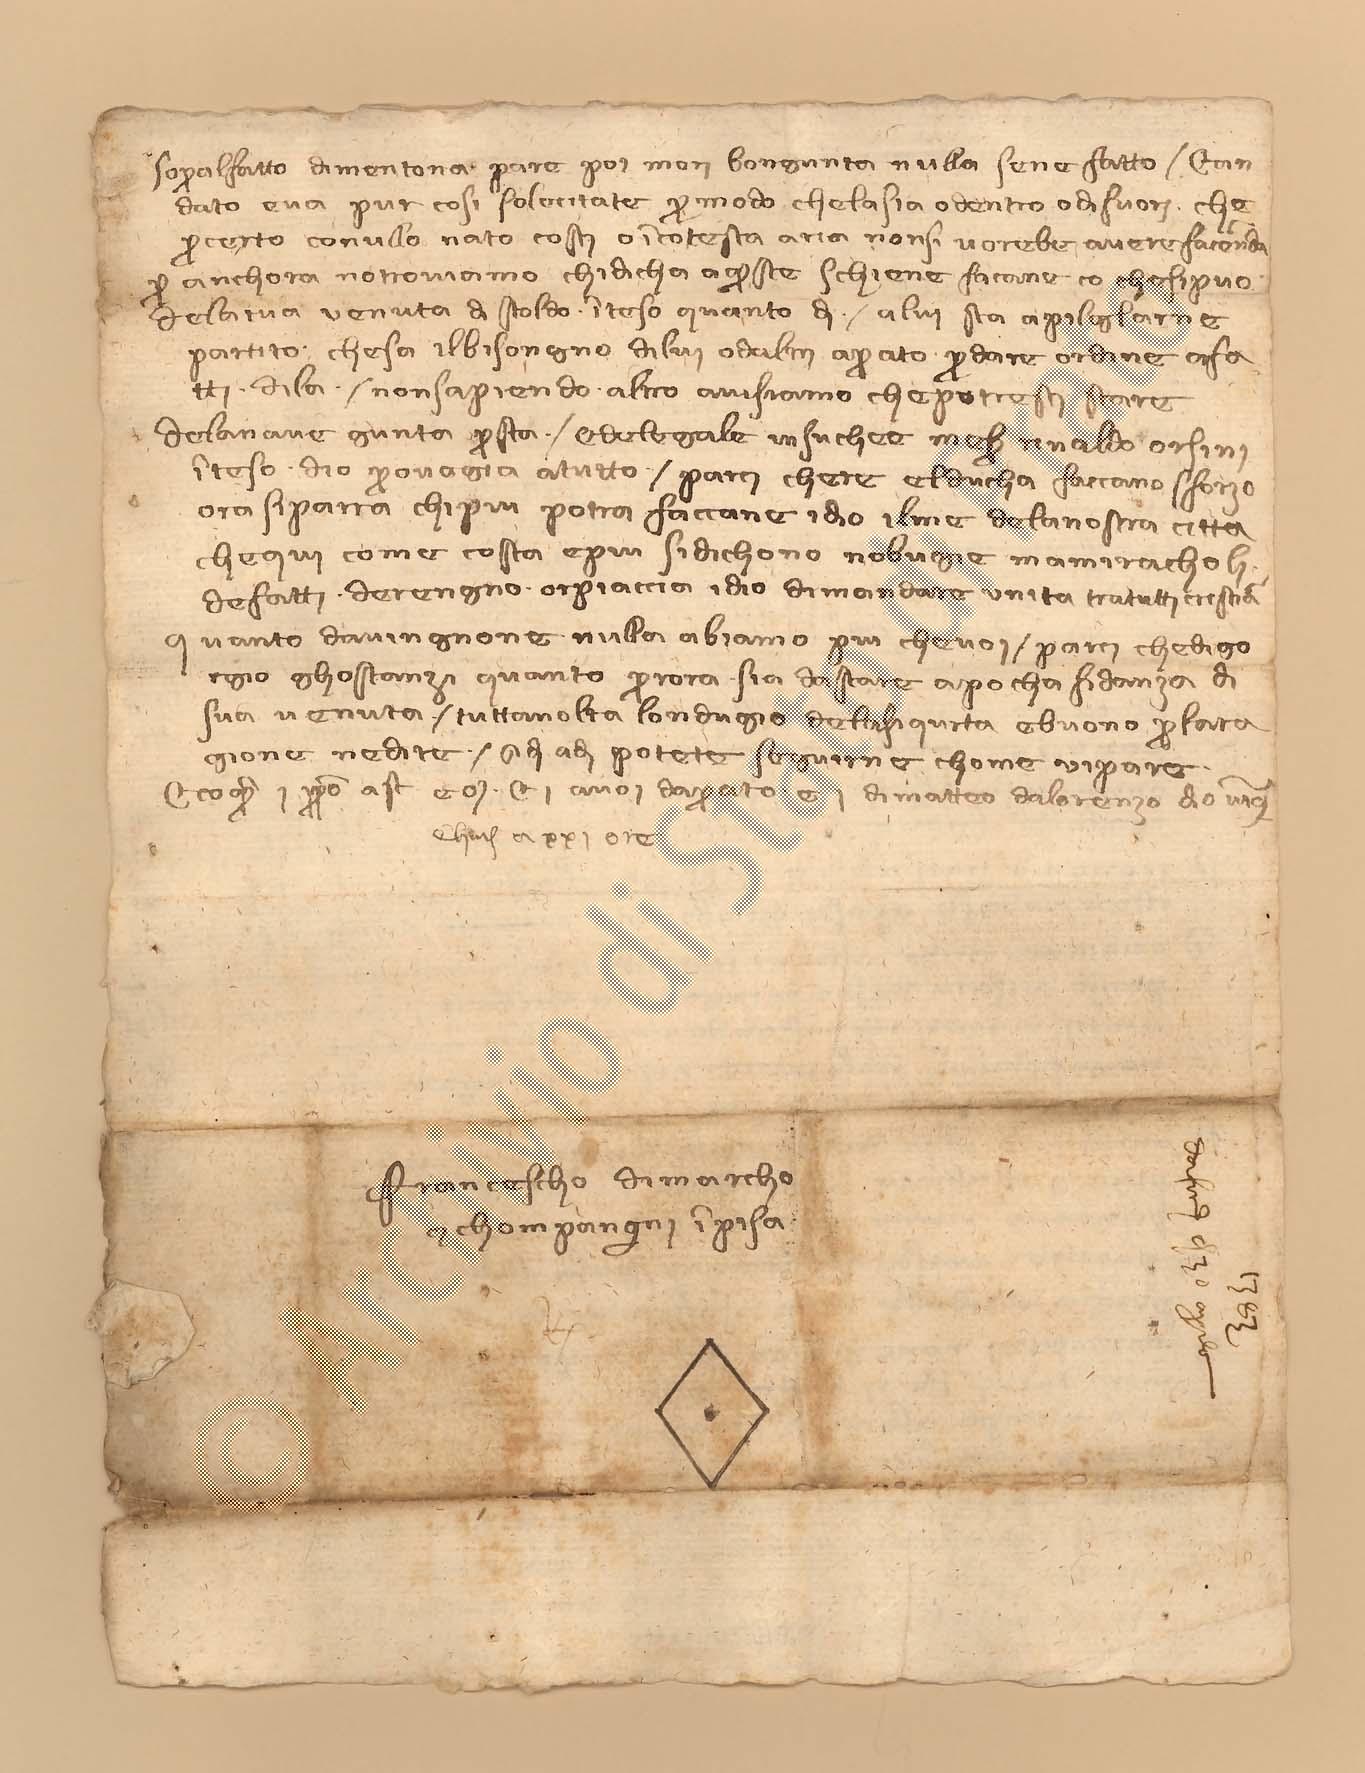 sopralfatto dimentona pare poi mon bongunta nulla sene fatto / Et an
dato eva pur cosi solecitate p modo chelasia odentro odifuori che
p certo conullo nato costi o i cotesta aria nonsi vorebe avere facenda
p anchora notroviamo chidicha aqste schiene facane co chesipuo
Delatua venuta di stoldo iteso quanto di / alui sta apilglarne
partito chesa ilbisongno dilui odaltri aprato p dare ordine asa
tti dila / nonsapiendo altro avisiamo chepotresti stare
Delanave gunta p sta / edelegale insuchee rinaldo orsini
iteso dio provegia atutto / parci chere elducha faccano sforzo
ora siparra chipiu potra faccane idio ilme delanostra citta
chequi come costa epiu sidichono nobugie mamiracholi
defatti derengno orpiaccia idio dimandare unita tratutti crestia
quanto davingnone nulla abiamo piu chevoi / parci chedigo
rgio ghostanzi quanto p rora sia dastare apocha fidanza di
sua venuta / tuttavolta londugio delasiqurta ebuono p lara
gione vedete / potete seguirne chome vipare
avoi daprato e i dimatteo dalorenzo dio
a xxi ore
Francescho dimarcho
e chompangni i pisa
1383
© Archivio di Stato di Prato